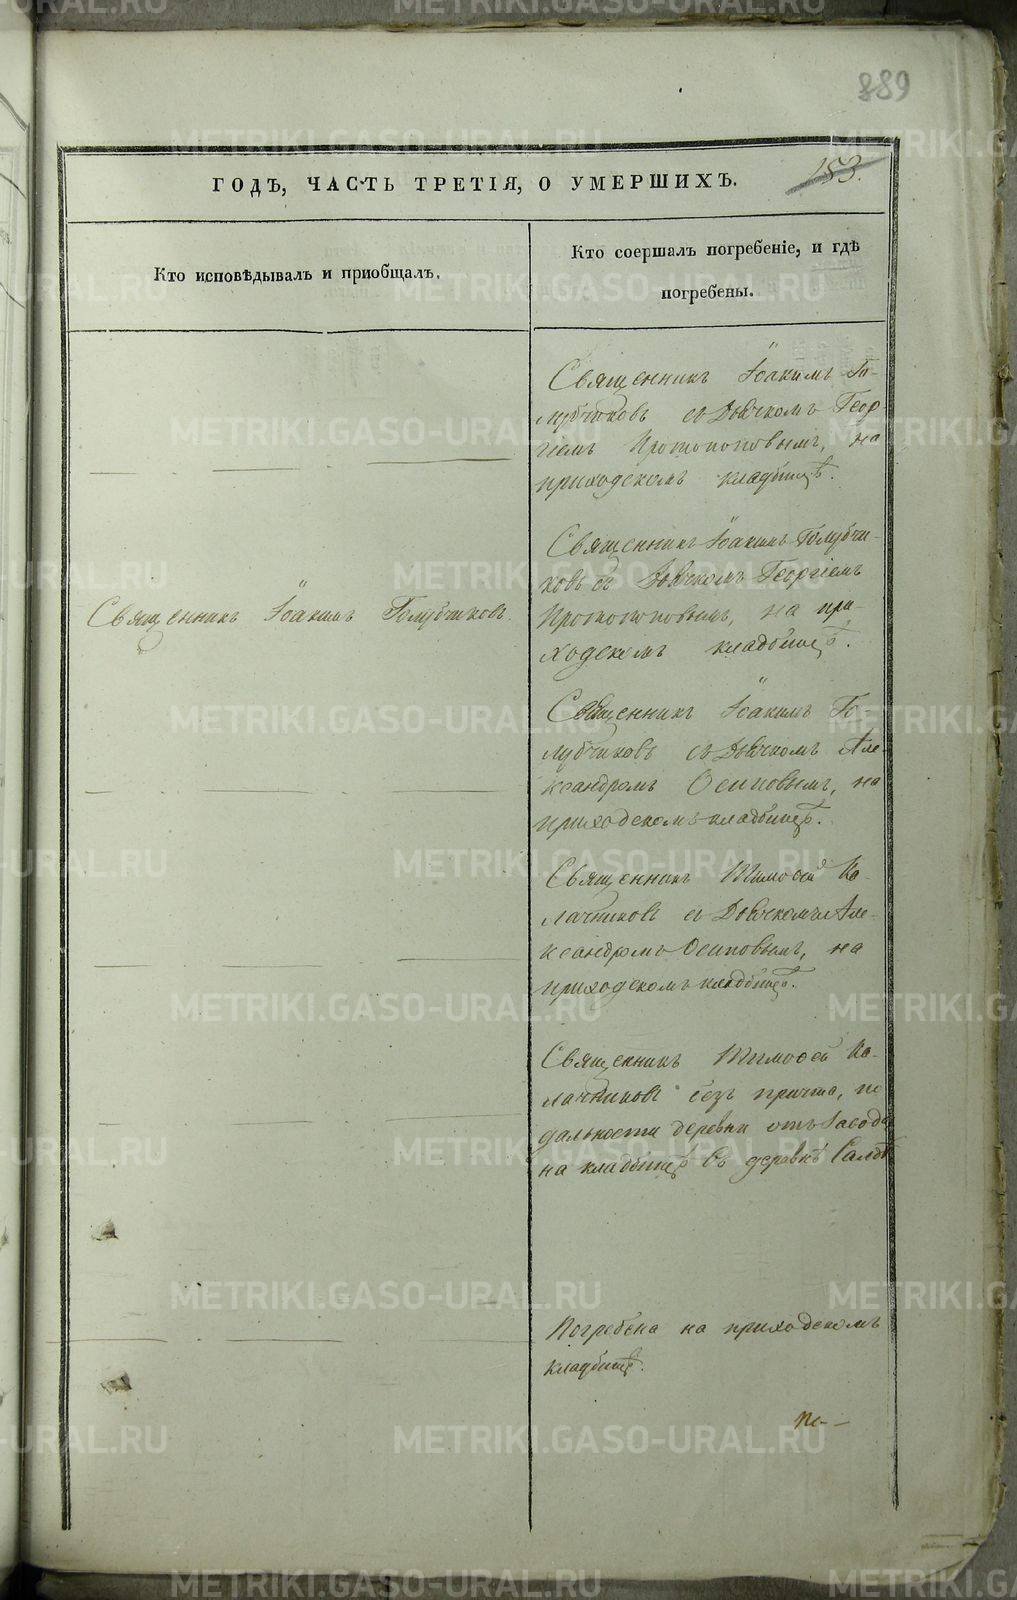 889
153.
ГОДЪ, ЧАСТЬ ТРЕТІЯ, О УМЕРШИХЪ.
Кто исповѣдывалъ и приобщалъ.
Кто соершалъ погребеніе, и гдѣ
погребены.
Священникъ Іоакимъ Го-
лубчиковъ съ Дьячкомъ Геор-
гіемъ Протопоповымъ, на
приходскомъ кладбищѣ.
Священникъ Іоакимъ Голубчиковъ.
Священникъ Іоакимъ Голубчи-
ковъ съ Дьячкомъ Георгіемъ
Протопоповымъ, на при-
ходскомъ кладбищѣ.
Священникъ Іоакимъ Го-
лубчиковъ съ Дьячкомъ Але-
ксандромъ Осиповымъ, на
приходскомъ кладбищѣ.
Священникъ Тимофей Ка-
лачниковъ съ Дьячкомъ Але-
ксандромъ Осиповымъ, на
приходскомъ кладбищѣ.
Священникъ Тимофей Ка-
лачниковъ безъ причта, по
дальности деревни отъ
на кладбищѣ въ деревнѣ
Погребена на приходскомъ
кладбищѣ.
METRIKI.GASO-URAL.RU